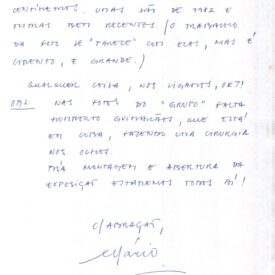 CENTÍMETROS. UMAS SÃO DE 1982 E
OUTRAS BEM RECENTES (O TRABALHO
DA FOTO DE "PAREDE" COM ELAS, MAS É
LIBENTO, E GRANDE.)
QUALQUER COISA, NOS LIGAMOS, OK?!
OBS. NAS FOTOS DO "GRUPO" FALTA
HUMBERTO GUIMARÃES, QUE ESTÁ
EM CUBA, FAZENDO UMA CIRURGIA
NOS OLHOS.
PRÁ MONTAGEM E ABERTURA DA
EXPOSIÇÃO ESTAREMOS TODOS AÍ!
C/ ABRAÇOS,
Mário